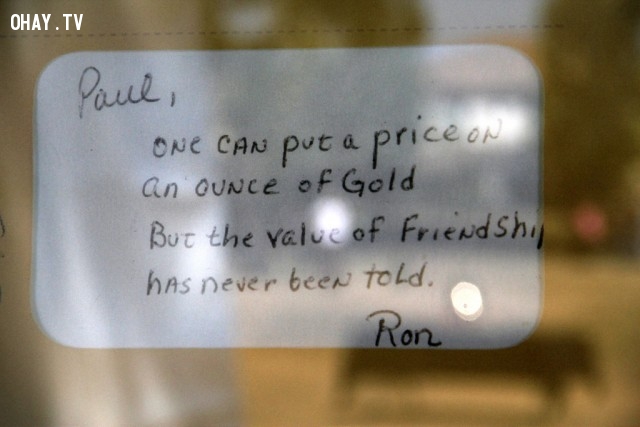 OHAY.TV
Paul,
ONE CAN put a price ON
an OUNCE of Gold
But the value of FRIENDShip
hAS never been told.
Ron